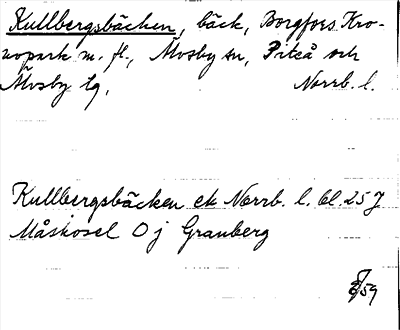 Kullbergsbäcken, bäck, Borgfors Kro-
nopark m. fl., Älvsby sn, Piteå och
Älvsby tg, Norrb. l.
Kullbergsbäcken ek Norrb. l. bl. 25 J
Måskosel O j Granberg
/59